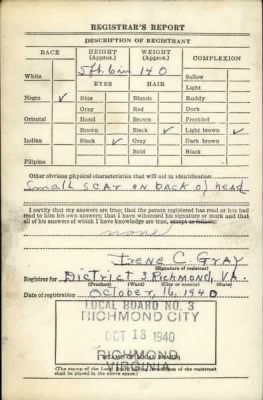 REGISTRAR'S REPORT
DESCRIPTION OF REGISTRANT
RACE HEIGHT (Approx.) WEIGHT (Approx.) COMPLEXION
White 5ft. 6in 140 Sallow
EYES HAIR Light
Negro ✓ Blue Blonde Ruddy
Gray Red Dark
Oriental Hazel Brown Freckled
Brown Black ✓ Light brown ✓
Indian Black ✓ Gray Dark brown
Bald Black
Filipino
Other obvious physical characteristics that will aid in identification
Small scar on back of head
I certify that my answers are true; that the person registered has read or has had
read to him his own answers; that I have witnessed his signature or mark and that
all of his answers of which I have knowledge are true, except as follows:
none
Irene C. Gray
(Signature of registrar)
Registrar for District 3 Richmond, VA.
(Precinct) (Ward) (City or county) (State)
Date of registration October, 16, 1940
LOCAL BOARD NO. 3
RICHMOND CITY
OCT 18 1940
RICHMOND
VIRGINIA
(STAMP OF LOCAL BOARD)
(The stamp of the Local Board of the registrant
shall be placed in the above space.)